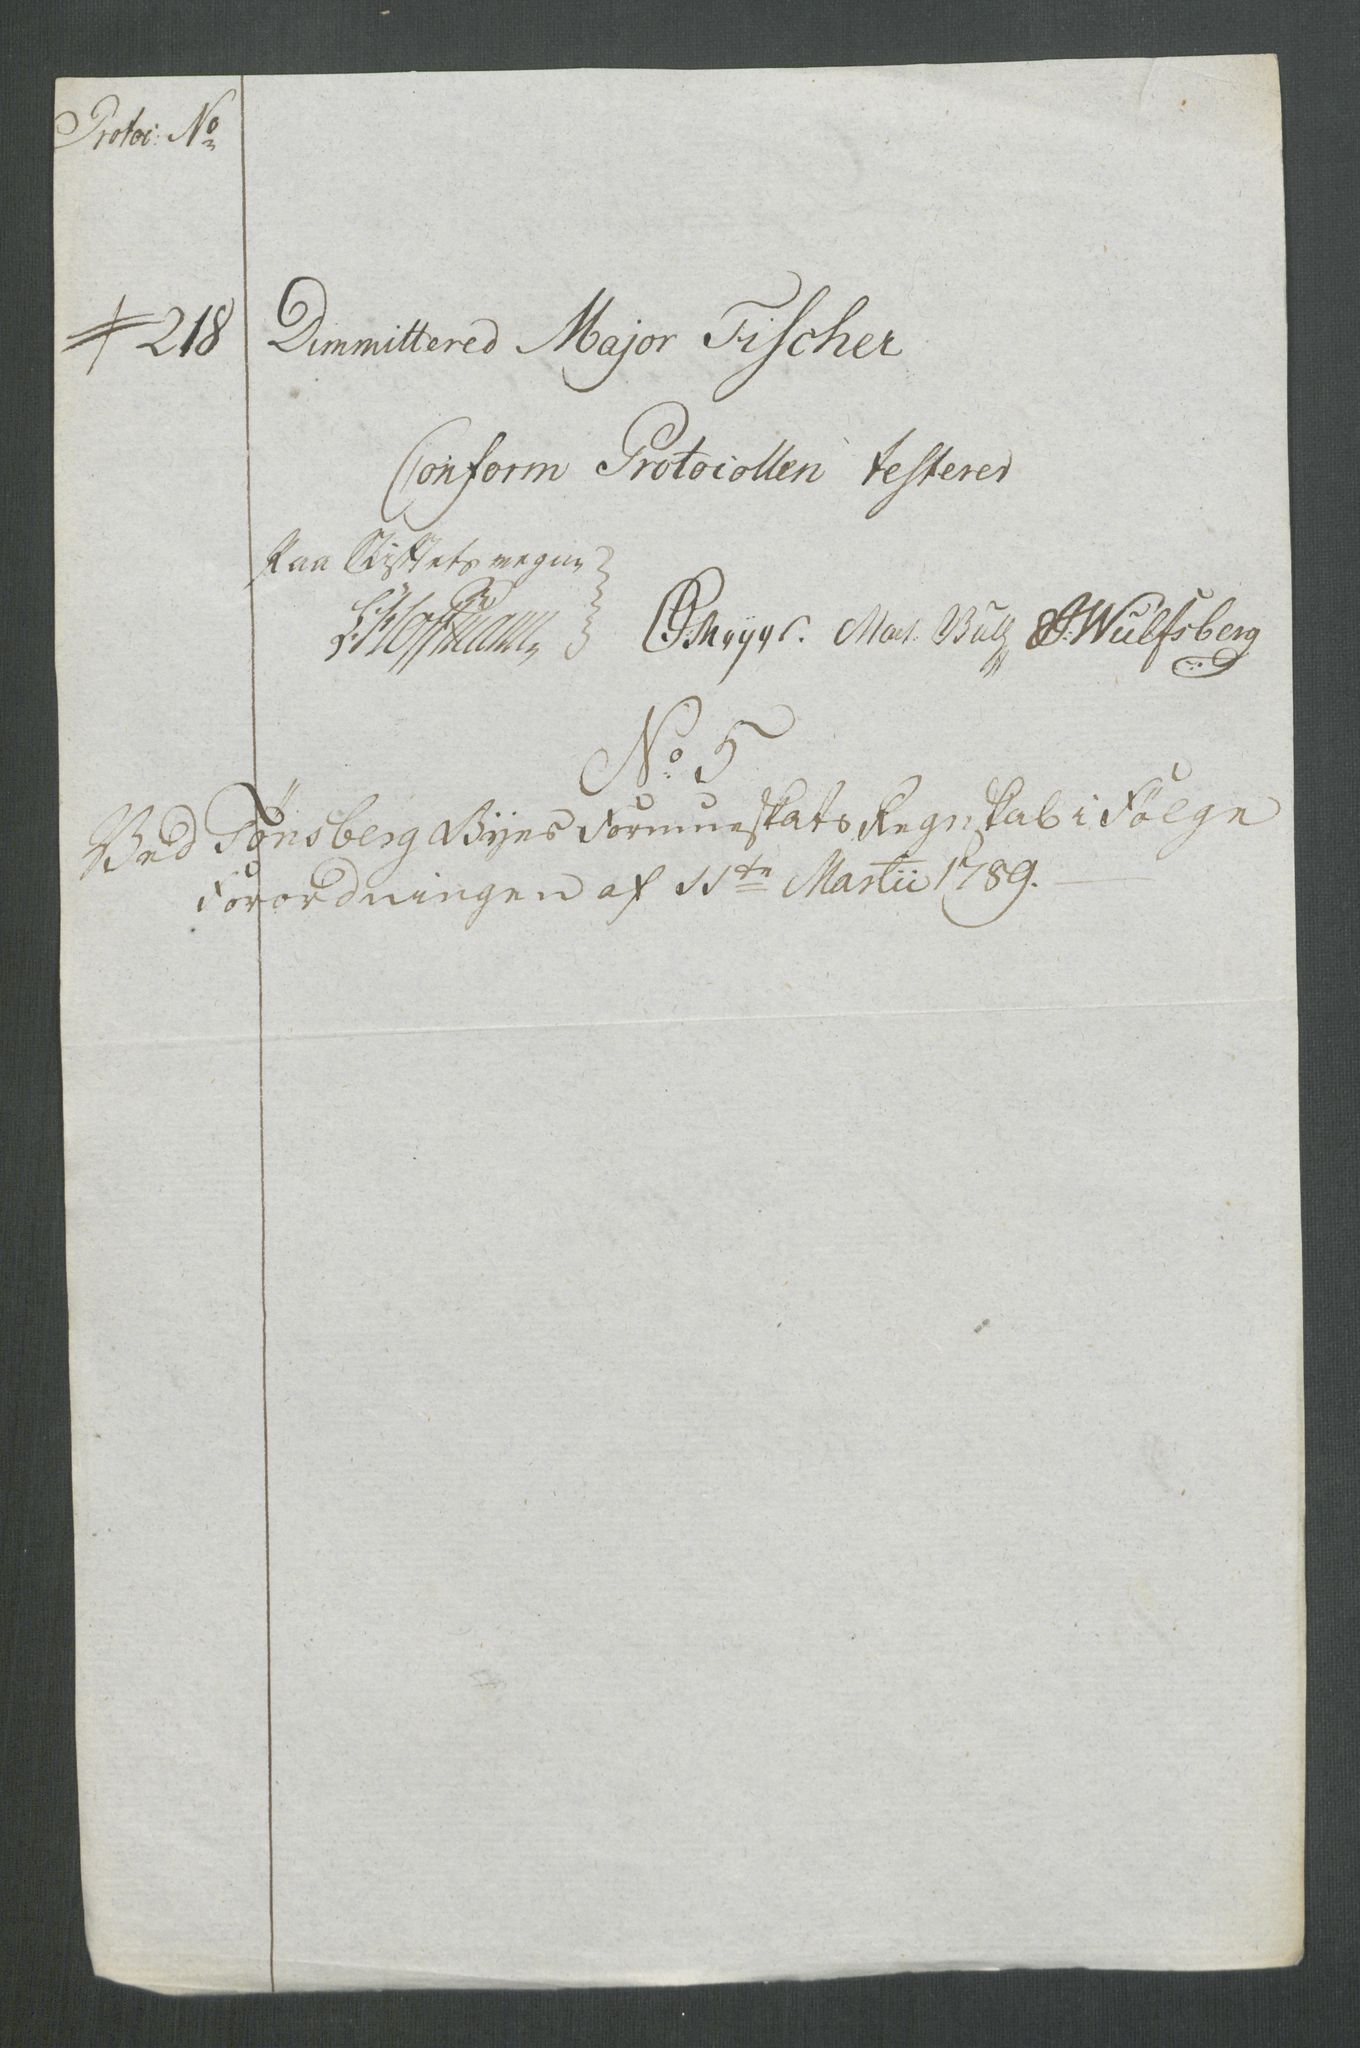 Protoc: No
218 Dimmittered Major Fischer
Conform Protocollen testered
Paa Stiftets vegne
Hoffmann
Mart. Bull Wulfsberg
No 5
Ved Tönsberg Byes Formueskats Regnskab i Fölge
Forordningen af 11te Martii 1789.